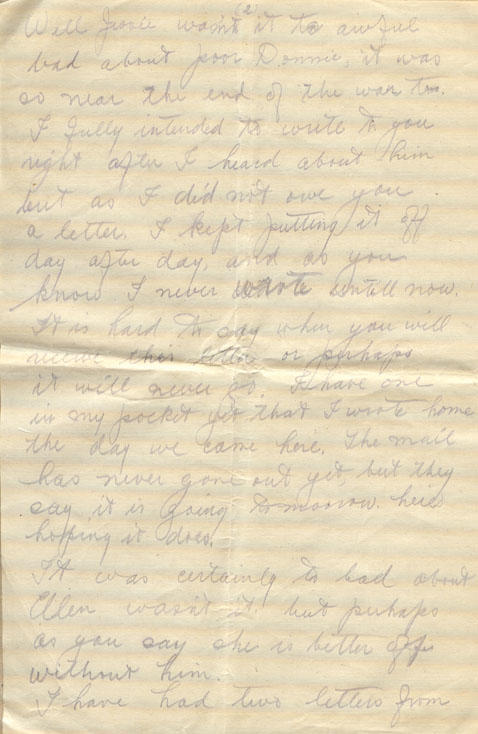 (2)
Well Jessie wasn't it to awful
bad about poor Donnie, it was
so near the end of the war too.
I fully intended to write to you
right after I heard about him
but as I did not owe you
a letter. I kept putting it off
day after day, and as you
know I never wrote untill now.
It is hard to say when you will
receive this letter or perhaps
it will never go. I have one
in my pocket yet that I wrote home
the day we came here. The mail
has never gone out yet, but they
say it is going tomorrow. heres
hopping it does.
It was certainly to bad about
Ellen wasn't it but perhaps
as you say she is better off
without him.
I have had two letters from